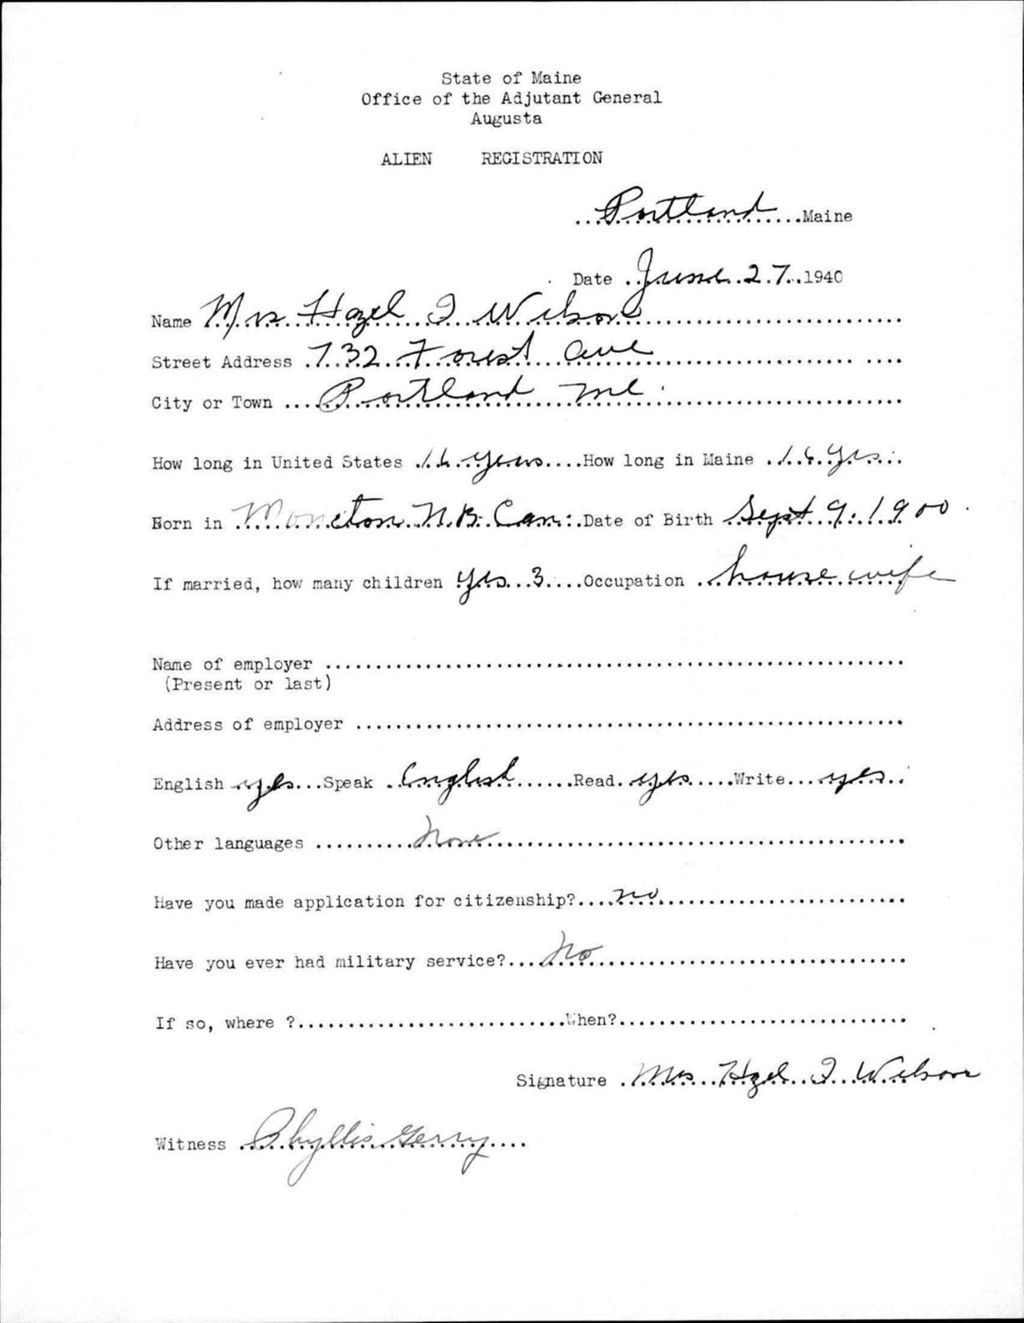 State of Maine
Office of the Adjutant General
Augusta
ALIEN REGISTRATION
Portland Maine
Date June 27 1940
Name Mrs Hazel I Wilson
Street Address 732 Forest Ave
City or Town Portland Me.
How long in United States 16 Years How long in Maine 16 Yrs.
Born in Moncton N.B. Can. Date of Birth Sept 9. 1900
If married, how many children yes 3 Occupation house wife
Name of employer
(Present or last)
Address of employer
English yes Speak English Read yes Write yes
Other languages None
Have you made application for citizenship? no
Have you ever had military service? No
If so, where ? When?
Signature Mrs Hazel I Wilson
Witness Phyllis Gerry